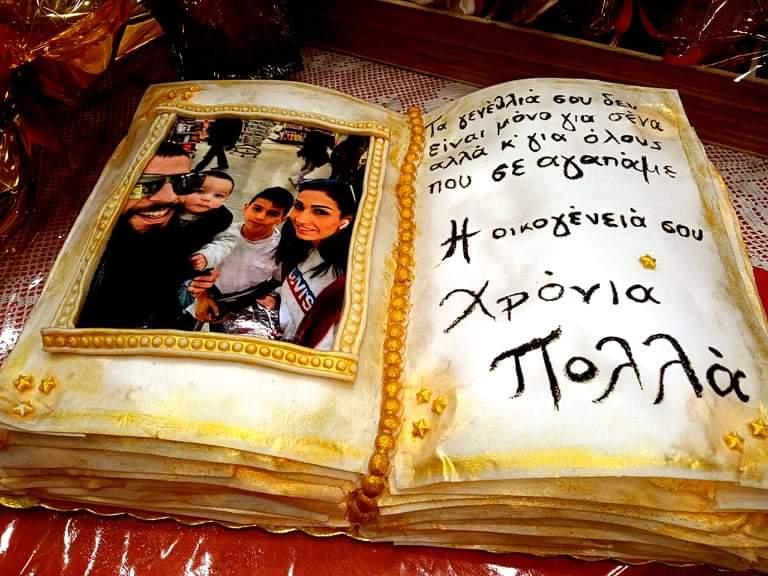 Τα γενέθλιά σου δεν
είναι μόνο για σένα
αλλά κ' για όλους
που σε αγαπάμε
Η οικογένειά σου
Χρόνια
Πολλά